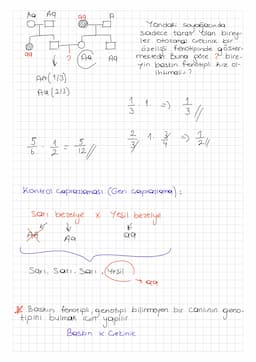 Aa Aa aa A
Yandaki soyağacında
sadece taralı olan birey-
ler otozomal çekinik bir
özelliği fenotipinde göster-
mektedir buna göre ? bire-
yin baskın fenotipli kız ol-
ihtimali?
aa ? Aa
AA (1/3)
Aa (2/3)
1/3 . 1 . => 1/3 //
5/6 . 1/2 = 5/12 //
2/3 . 1 . 3/4 => 1/2 //
Kontrol çaprazlaması (Geri çaprazlama) :
Sarı bezelye x Yeşil bezelye
AA Aa aa
Sarı, Sarı, Sarı, Yeşil
→ aa
* Baskın fenotipli, genotipi bilinmeyen bir canlının geno-
tipini bulmak için yapılır.
Baskın x Çekinik